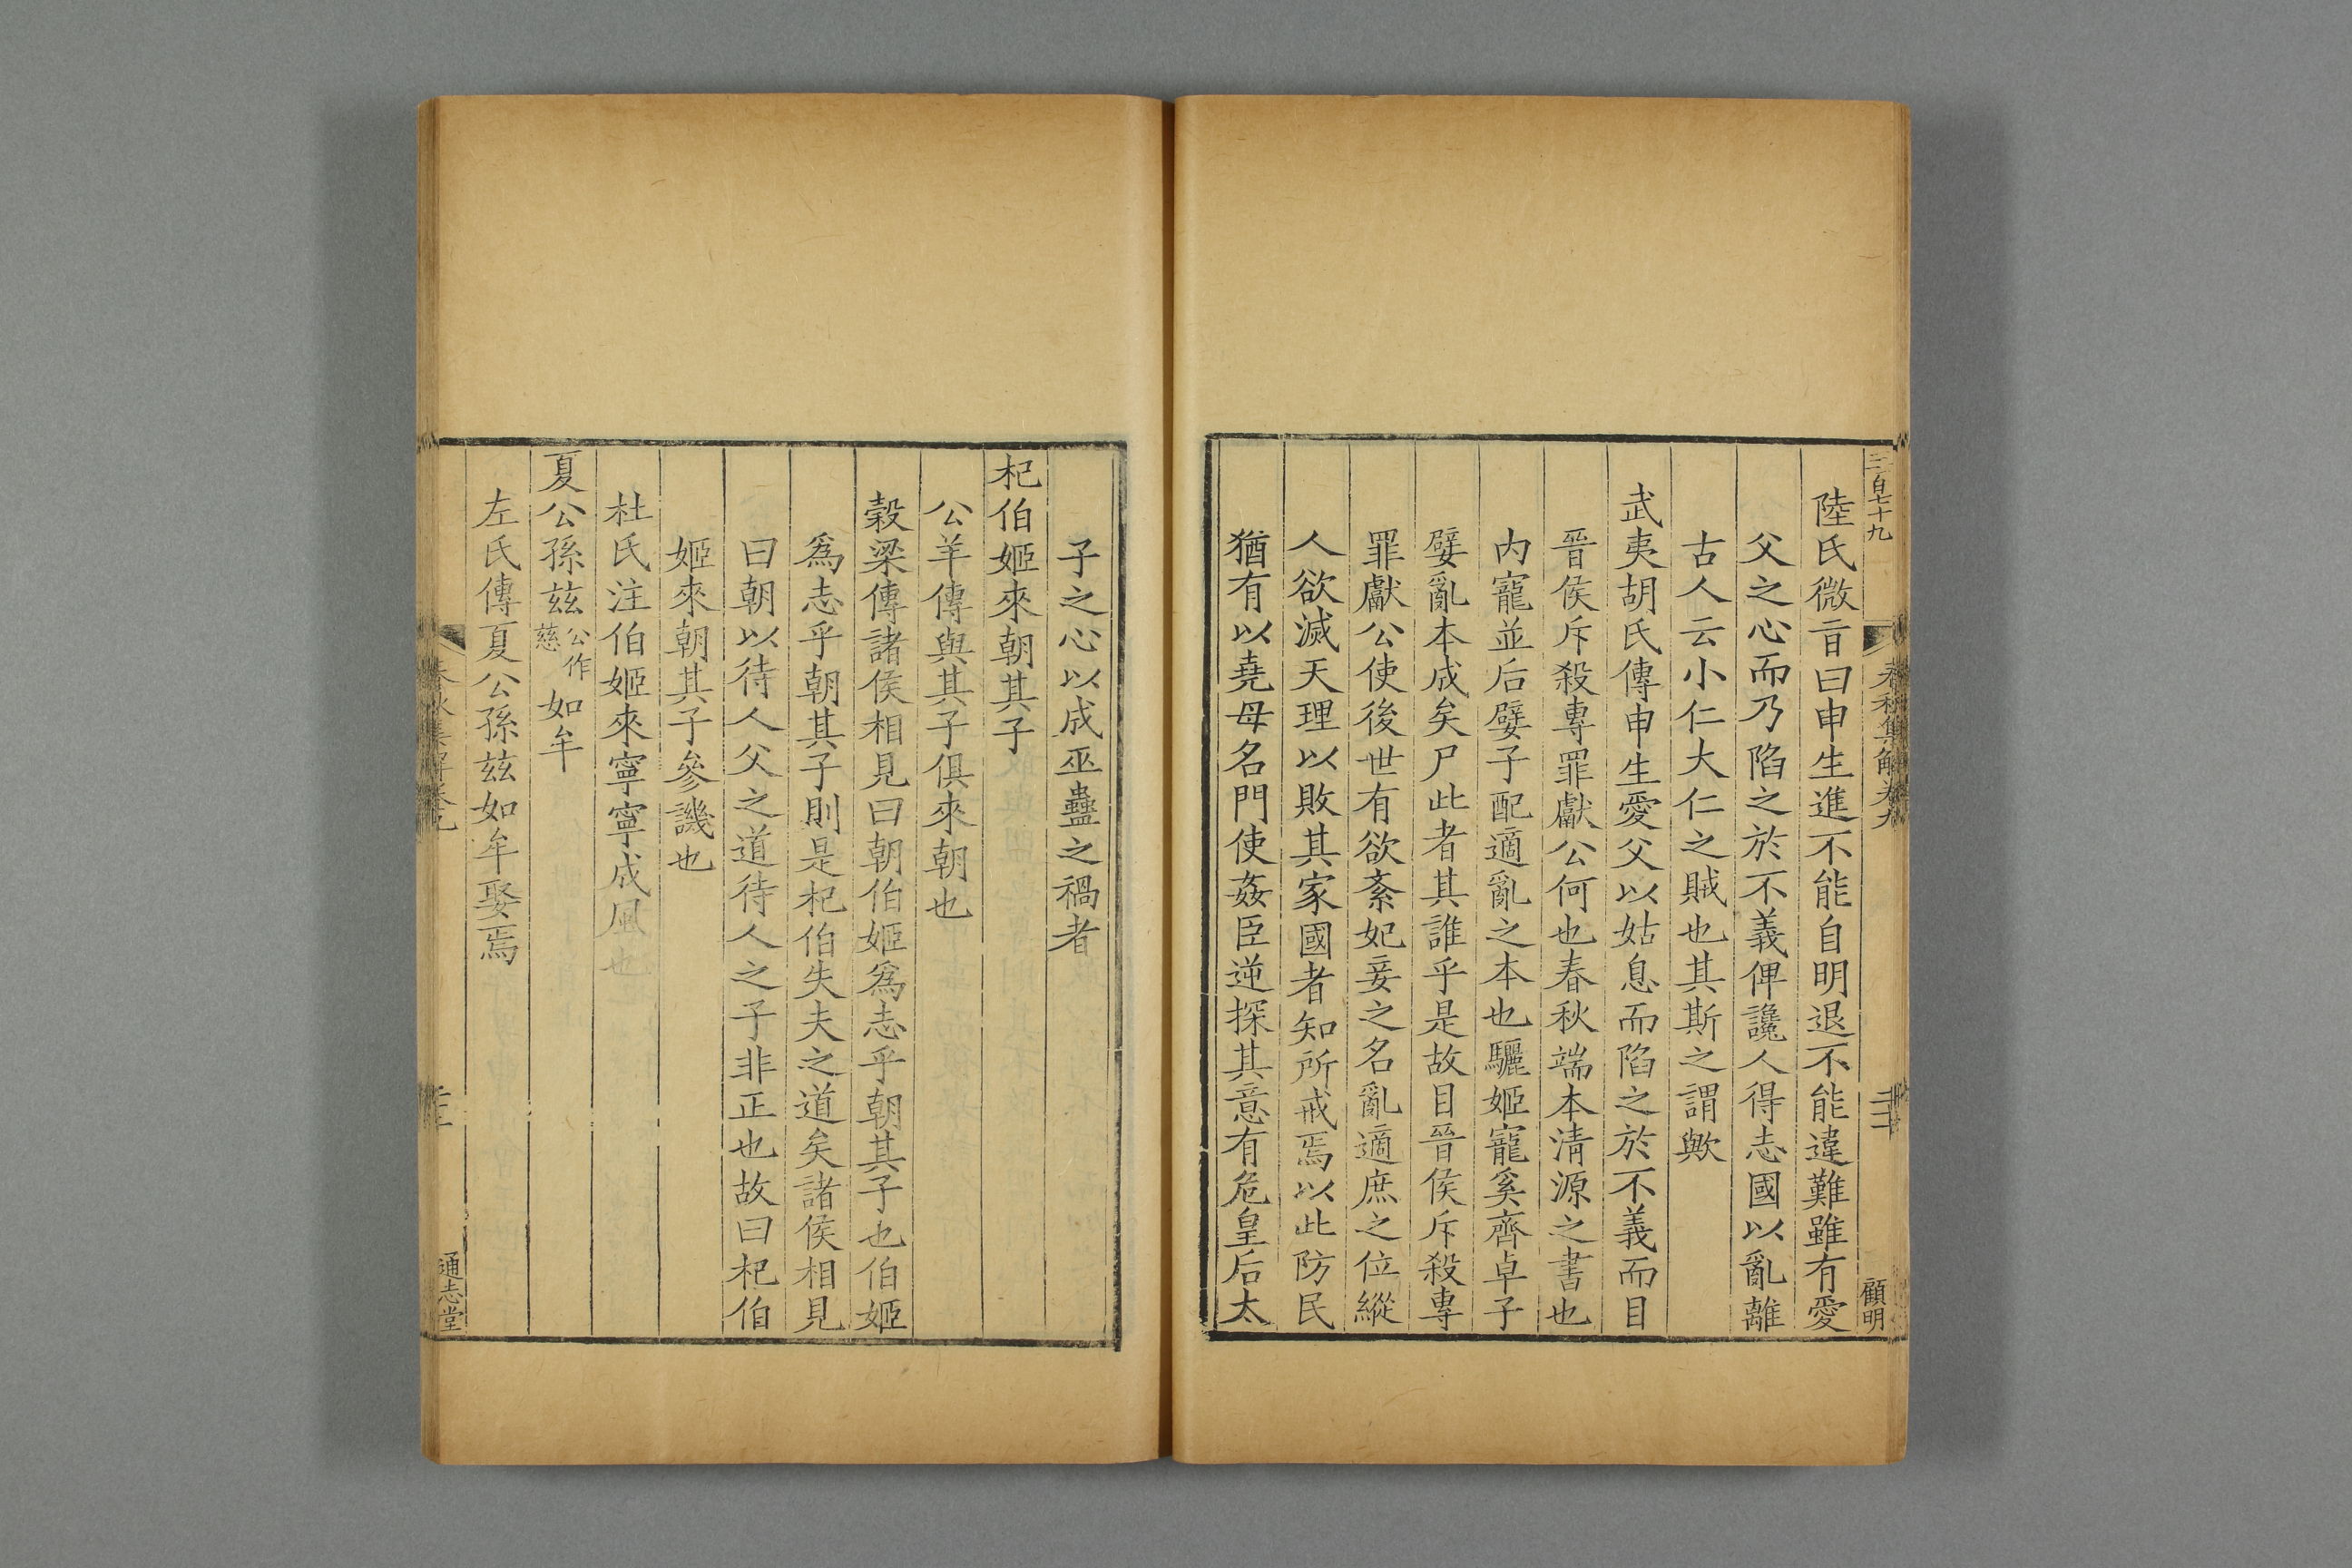 三百七十九
春秋集解卷九
二十二
顧明
陸氏微盲曰申生進不能自明退不能違難雖有愛
父之心而乃陷之於不義俾讒人得志國以亂離
古人云小仁大仁之賊也其斯之謂歟
武夷胡氏傳申生愛父以姑息而陷之於不義而目
晉侯斥殺專罪獻公何也春秋端本清源之書也
内寵並后嬖子配適亂之本也驪姬寵奚齊卓子
嬖亂本成矣尸此者其誰乎是故目晉侯斥殺專
罪獻公使後世有欲紊妃妾之名亂適庶之位縱
人欲滅天理以敗其家國者知所戒焉以此防民
猶有以堯母名門使姦臣逆探其意有危皇后太
子之心以成巫蠱之禍者
杞伯姬來朝其子
公羊傳與其子俱來朝也
穀梁傳諸侯相見曰朝伯姬爲志乎朝其子也伯姬
爲志乎朝其子則是杞伯失夫之道矣諸侯相見
曰朝以待人父之道待人之子非正也故曰杞伯
姬來朝其子參譏也
杜氏注伯姬來寧寧成風也
夏公孫兹公作慈如牟
左氏傳夏公孫兹如牟娶焉
春秋集解卷九
通志堂